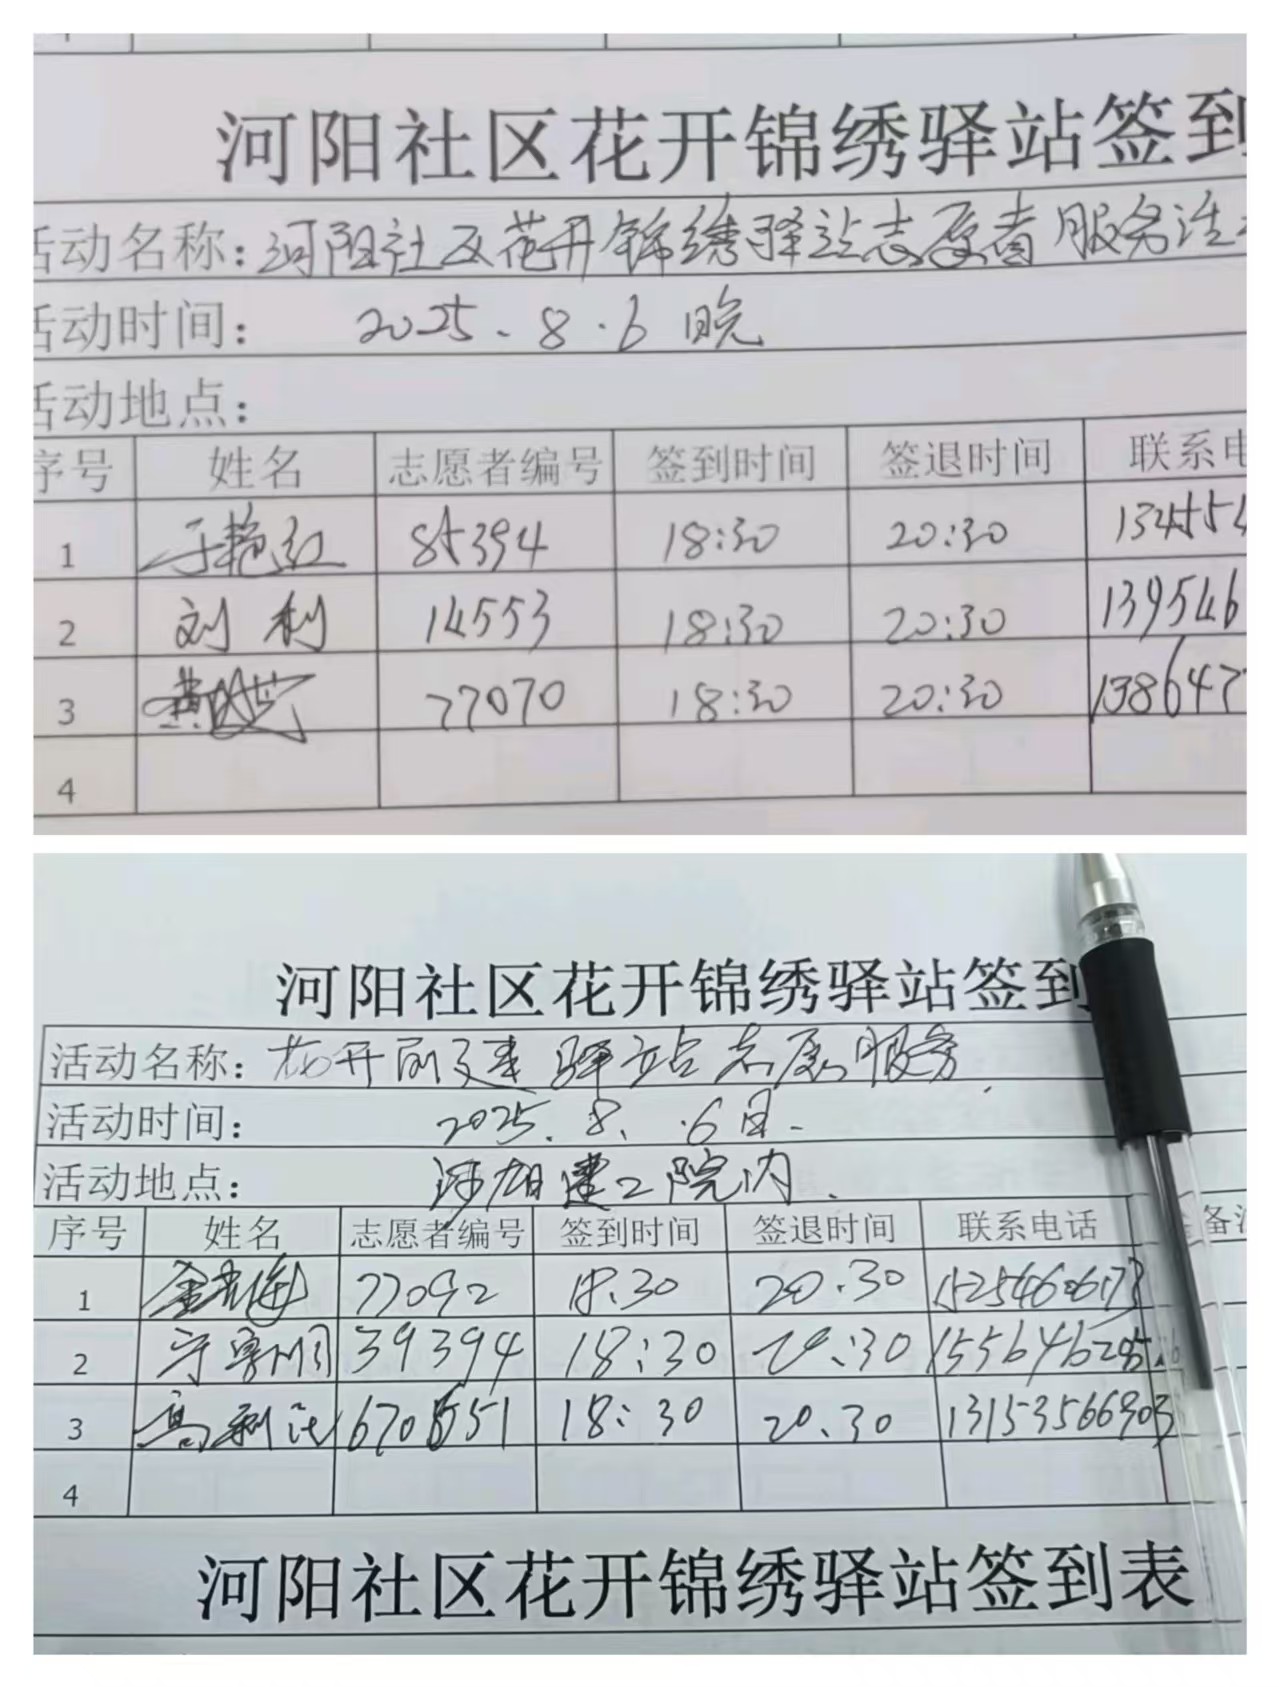 河阳社区花开锦绣驿站签到
活动名称：河阳社区花开锦绣驿站志愿者服务活
活动时间： 2025.8.6 晚
活动地点：
序号 姓名 志愿者编号 签到时间 签退时间 联系电
1 于艳红 85394 18:30 20:30 134554
2 刘利 14553 18:30 20:30 139546
3 77070 18:30 20:30 138647
4
河阳社区花开锦绣驿站签到
活动名称：花开 驿站志愿服务
活动时间： 2025.8.6日.
活动地点： 建工院内.
序号 姓名 志愿者编号 签到时间 签退时间 联系电话 备
1 77092 18.30 20.30 15254606173
2 39394 18:30 20:30
3 18:30 20.30 13153566903
4
河阳社区花开锦绣驿站签到表